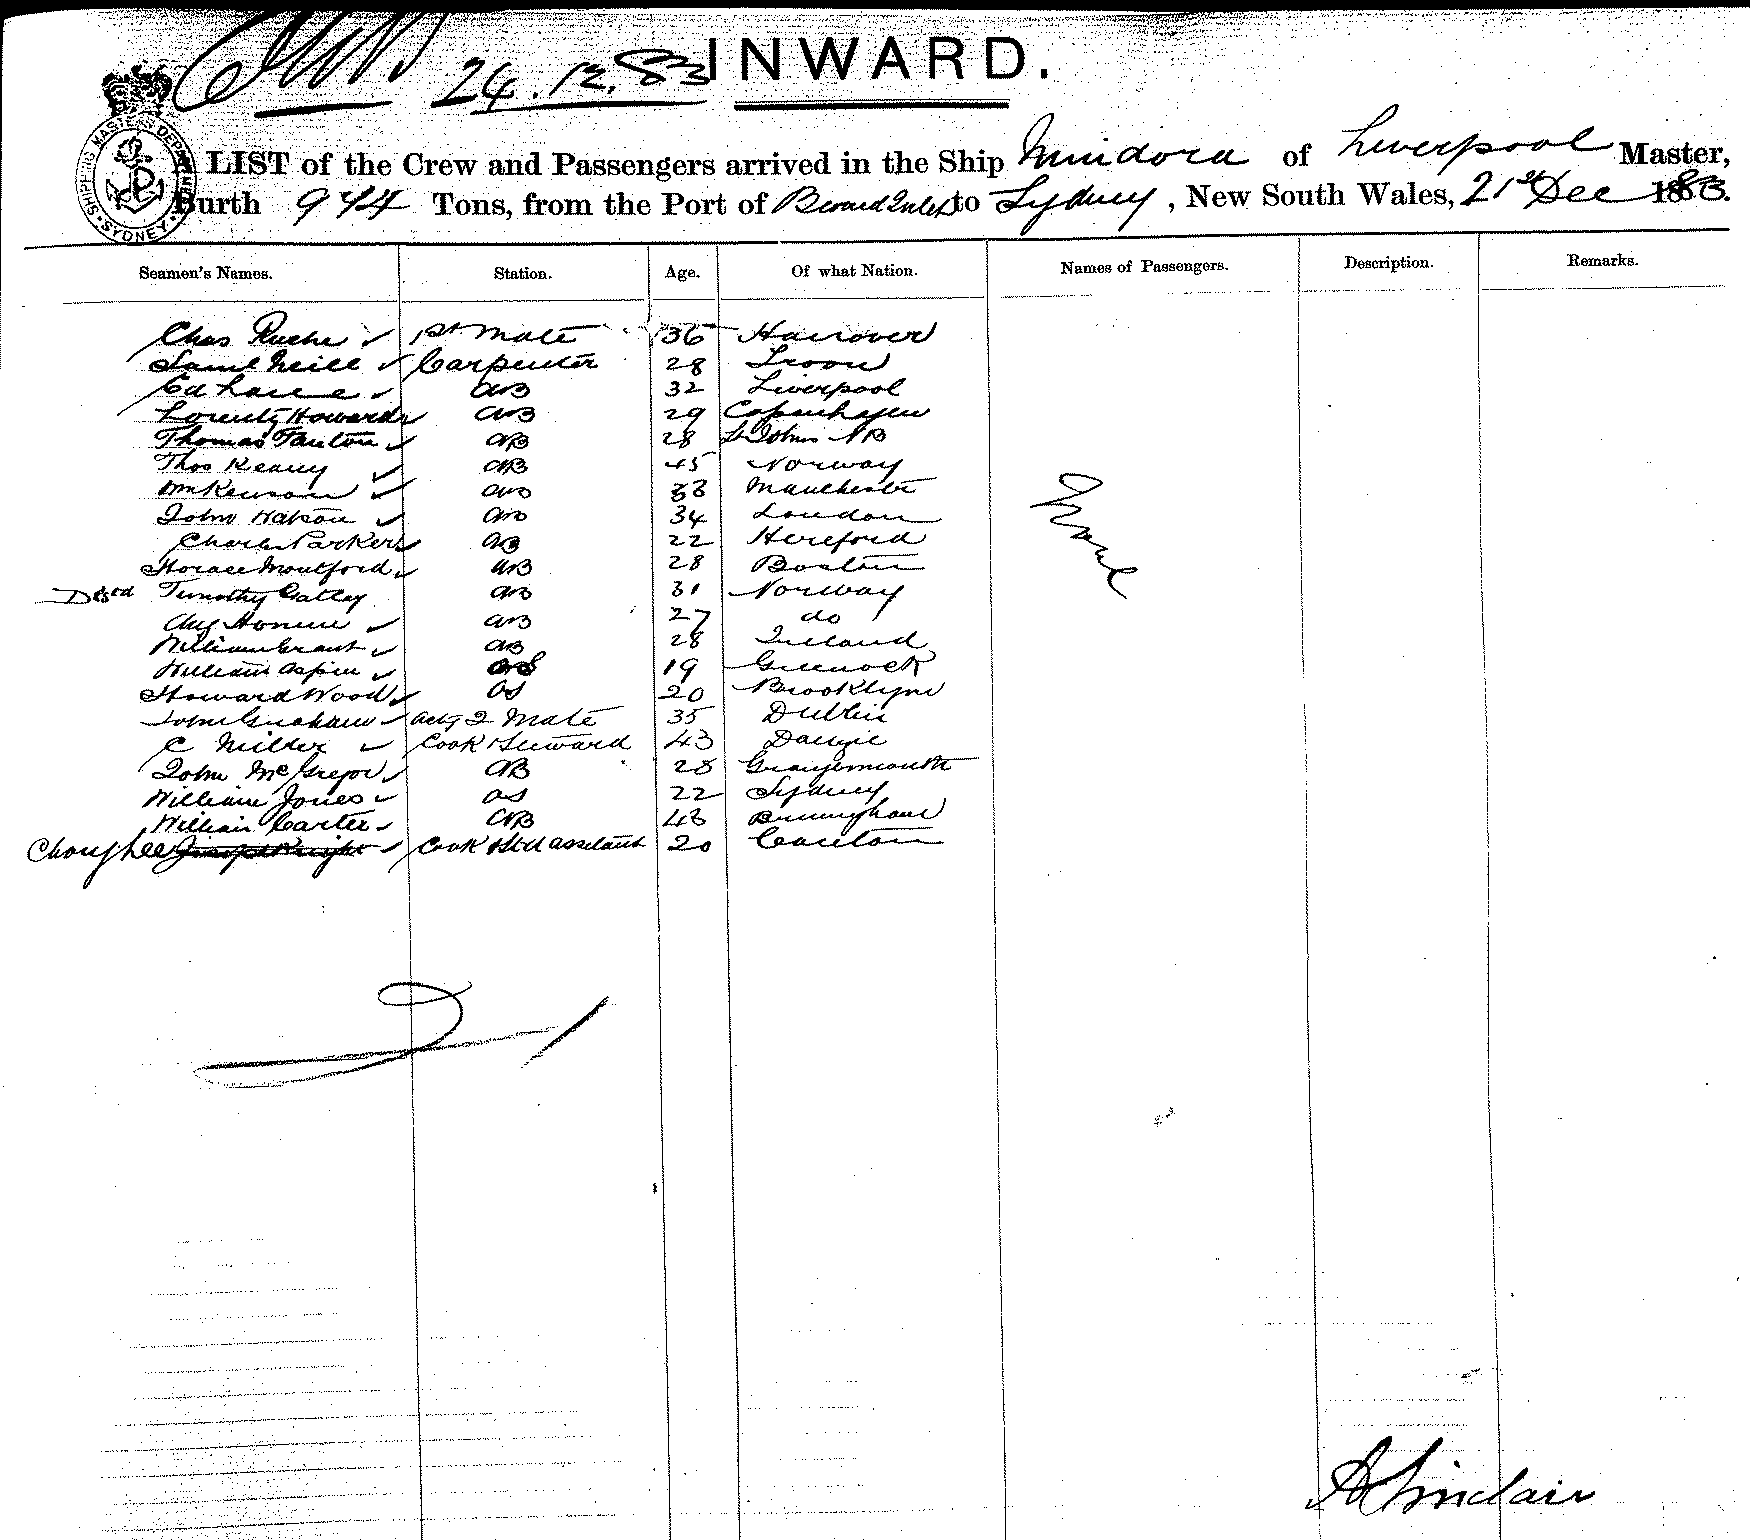 24.12.83
INWARD.
SHIPPING MASTER'S DEPARTMENT SYDNEY
A LIST of the Crew and Passengers arrived in the Ship Mindora of Liverpool Master,
Burth 944 Tons, from the Port of Inlet to Sydney, New South Wales, 21st Dec 1883.
Seamen's Names. Station. Age. Of what Nation. Names of Passengers. Description. Remarks.
Chas 1st Mate 36 Hanover
Saml Neill Carpenter 28 Troon
Ed AB 32 Liverpool
Lorentz Howard AB 29 Copenhagen
Thomas AB 28 St Johns NB
Thos Keary AB 45 Norway
Wm AB 33 Manchester
John Watson AB 34 London
Charles Parker AB 22 Hereford
Horace Montford AB 28 Boston
Timothy AB 31 Norway
Aug AB 27 do
William Grant AB 28 Ireland
William Aspin OS 19 Greenock
Howard Wood OS 20 Brooklyne
John Graham actg 2 Mate 35 Dublin
C Miller Cook Steward 43
John McGregor AB 28
William Jones OS 22 Sydney
William Carter AB 43 Birmingham
Cook Std assistant 20 Canton
None
A Sinclair